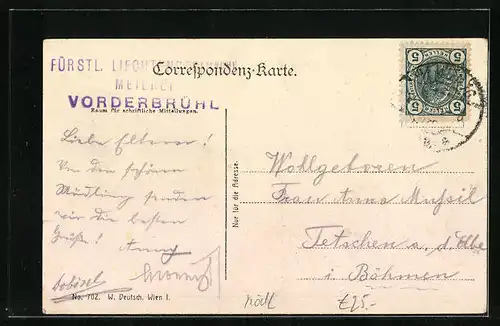 FÜRSTL. LIECHTENSTEIN'SCHE
MEIEREI
VORDERBRÜHL
Correspondenz-Karte.
5 5
5 5
Raum für schriftliche Mitteilungen.
Nur für die Adresse.
Liebe Eltern!
Von dem schönen
Mödling senden
wir die besten
Grüße! Anny
Wohlgeboren
Frau Anna Mussil
Tetschen a. d. Elbe
i Böhmen
No. 702. W. Deutsch, Wien I.
€25-